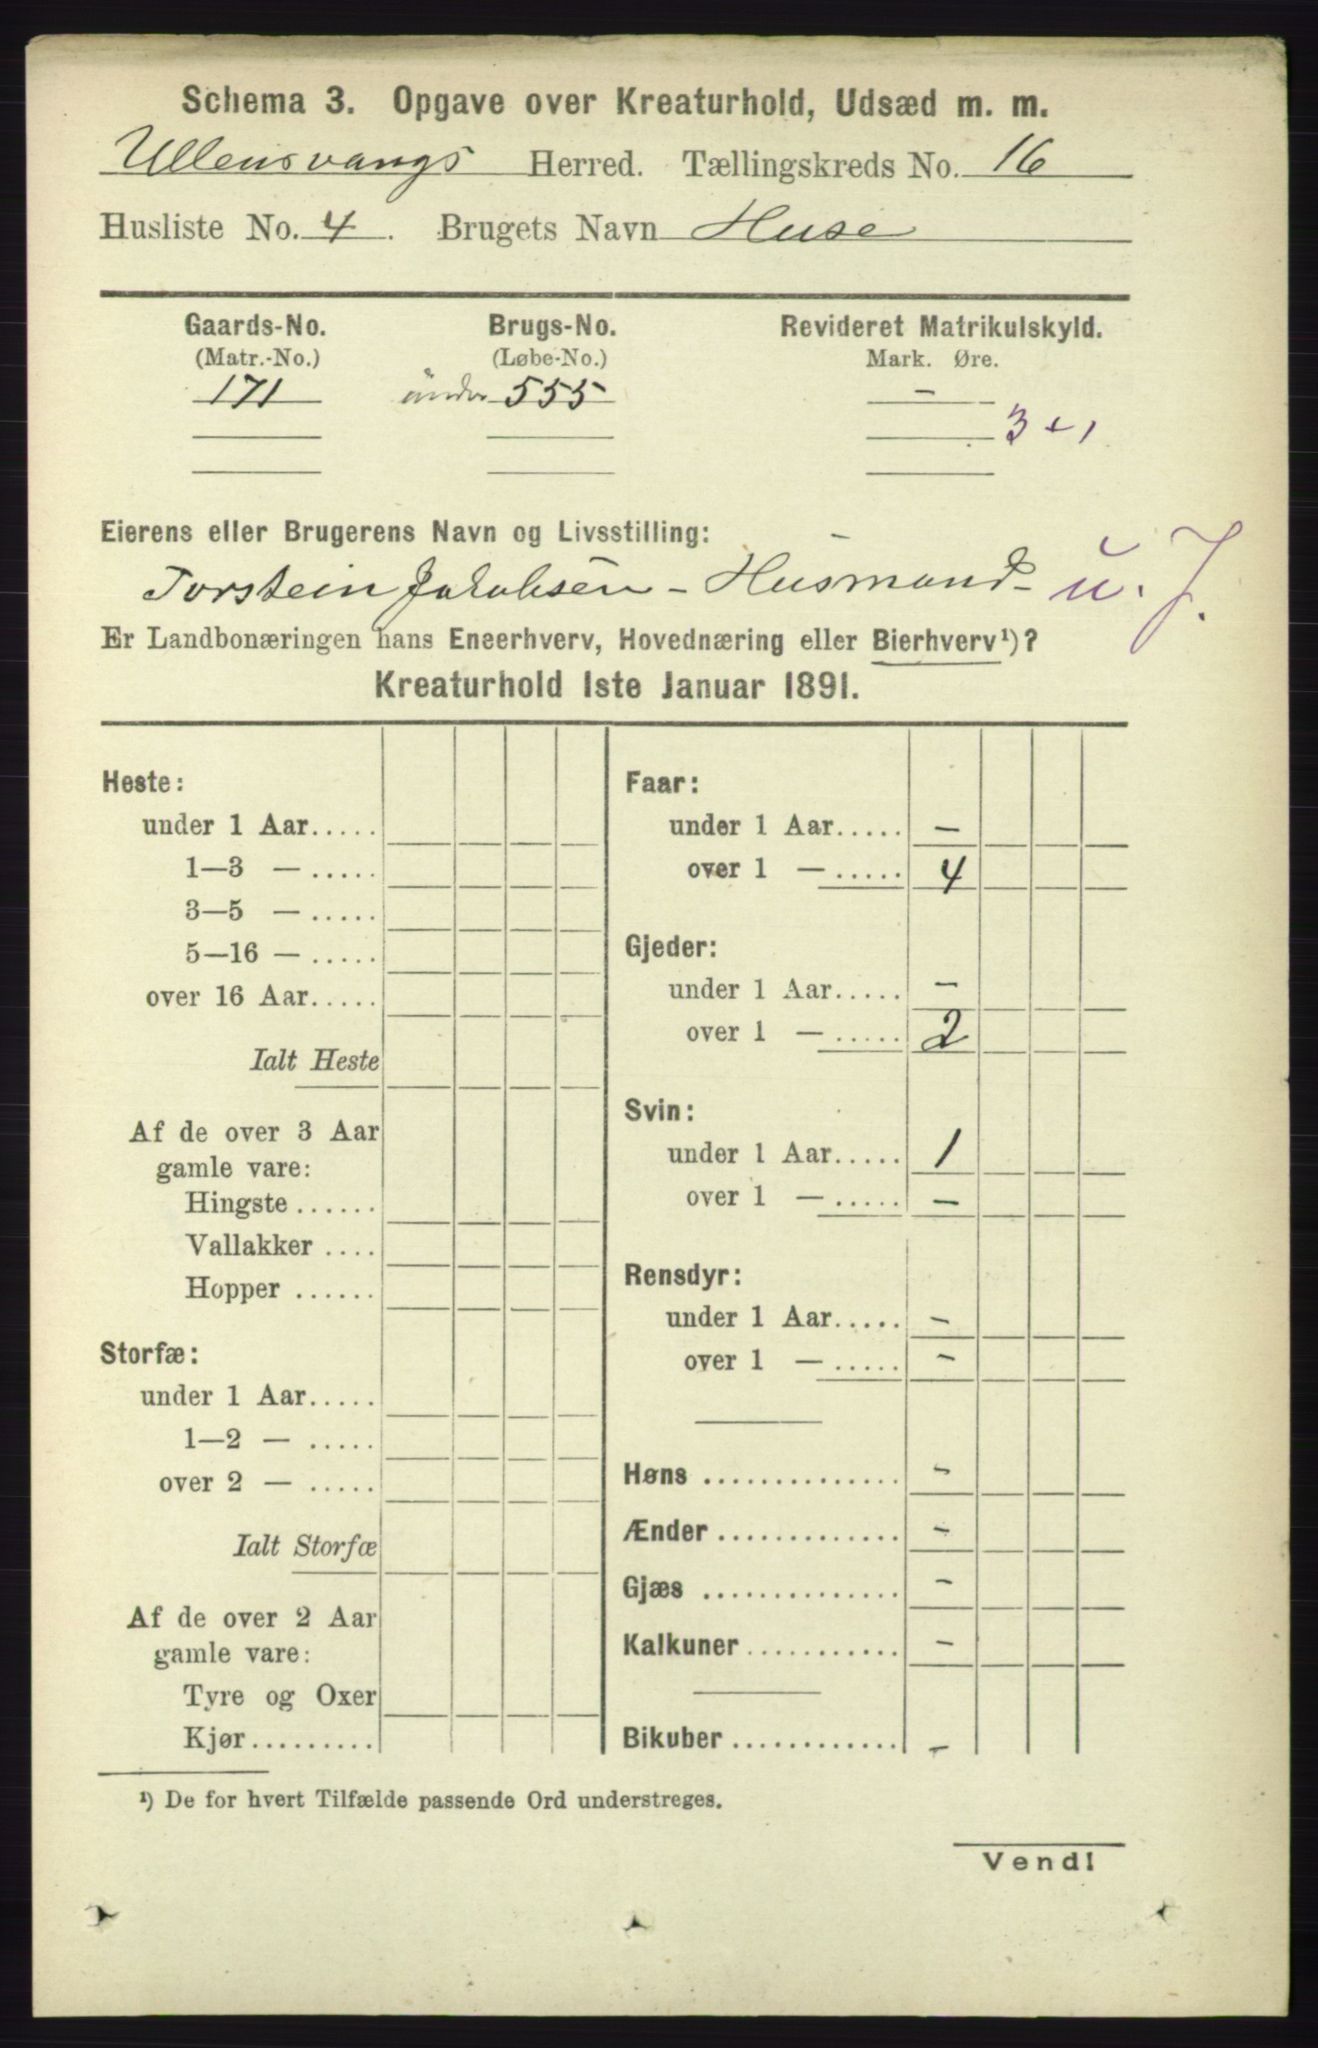 Schema 3. Opgave over Kreaturhold, Udsæd m. m.
Ullensvangs Herred. Tællingskreds No. 16
Husliste No. 4. Brugets Navn Huse
Gaards-No. Brugs-No. Revideret Matrikulskyld.
(Matr.-No.) (Løbe-No.) Mark. Øre.
171 under 555 -
3 + 1
Eierens eller Brugerens Navn og Livsstilling:
Torstein Jakobsen - Husmand - u. J.
Er Landbonæringen hans Eneerhverv, Hovednæring eller Bierhverv¹)?
Kreaturhold 1ste Januar 1891.
Heste:
under 1 Aar.....
1—3 — .....
3—5 — .....
5—16 — .....
over 16 Aar.....
Ialt Heste
Af de over 3 Aar
gamle vare:
Hingste ......
Vallakker ....
Hopper ......
Storfæ:
under 1 Aar.....
1—2 — .....
over 2 — .....
Ialt Storfæ
Af de over 2 Aar
gamle vare:
Tyre og Oxer
Kjør.........
Faar:
under 1 Aar..... -
over 1 — ..... 4
Gjeder:
under 1 Aar..... -
over 1 — ..... 2
Svin:
under 1 Aar..... 1
over 1 — ..... -
Rensdyr:
under 1 Aar..... -
over 1 — ..... -
Høns .............. -
Ænder ............. -
Gjæs .............. -
Kalkuner ........... -
Bikuber ............ -
¹) De for hvert Tilfælde passende Ord understreges.
Vend!